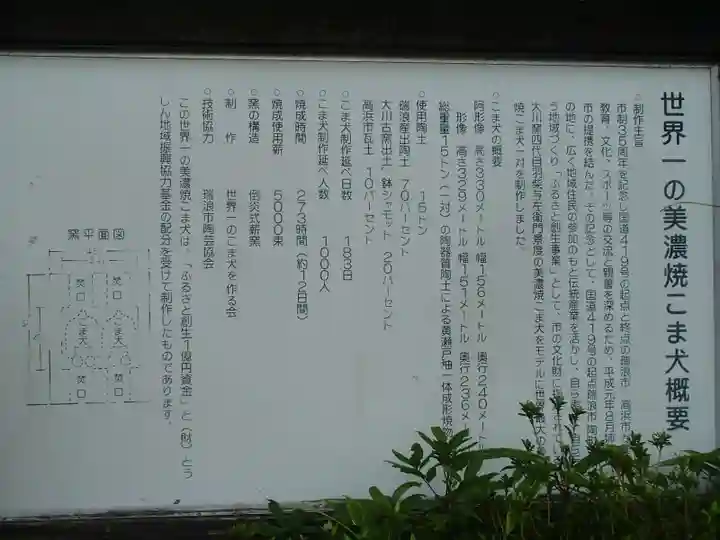 世界一の美濃焼こま犬概要
○制作主旨
市制35周年を記念し国道419号の起点と終点の瑞浪市 高浜市
教育、文化、スポーツ等の交流と親善を深めるため、平成元年8月姉
市の提携を結んだ。その記念として、国道419号の起点瑞浪市陶町
の地に、広く地域住民の参加のもと伝統産業を活かし、自ら考え自ら
う地域づくり「ふるさと創生事業」として、市の文化財に指定されてい
大川窯四代目羽柴与左衛門景度の美濃焼こま犬をモデルに世界最大の
焼こま犬一対を制作しました。
○こま犬の概要
阿形像 高さ330メートル 幅156メートル 奥行240メート
形像 高さ329メートル 幅151メートル 奥行236メー
総重量15トン(一対)の陶器質陶土による黄瀬戸釉一体成形焼物
○使用陶土 15トン
瑞浪産出陶土 70パーセント
大川古窯出土 鉢シャモット 20パーセント
高浜市瓦土 10パーセント
○こま犬制作延べ日数 183日
○こま犬制作延べ人数 1000人
○焼成時間 273時間(約12日間)
○焼成使用薪 5000束
○窯の構造 倒炎式薪窯
○制作 世界一のこま犬を作る会
○技術協力 瑞浪市陶芸協会
この世界一の美濃焼こま犬は、「ふるさと創生1億円資金」と(財)とう
しん地域振興協力基金の配分を受けて制作したものであります。
窯平面図
焚口
焚口
こま犬
こま犬
焚口
焚口